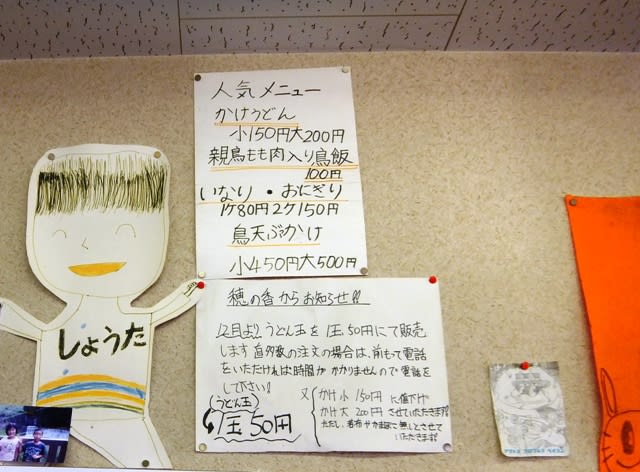 人気メニュー
かけうどん
小150円大200円
親鳥もも肉入り鳥飯
100円
いなり・おにぎり
1ケ80円2ケ150円
鳥天ぶかけ
小450円大500円
穂の香からお知らせ!!
12月よりうどん玉を1玉50円にて販売
します 多数の注文の場合は、前もって電話
をいただければ時間がかかりませんので電話を
して下さい!
(うどん玉)
1玉50円
又
かけ小150円に値下げ
かけ大200円させていただきます!!
ただし、若布やかまぼこ無しとさせて
いただきます!!
しょうた